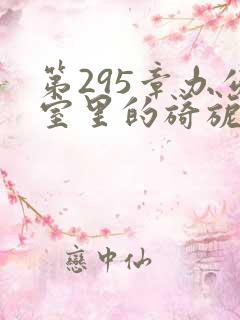 第295章办公
室里的旖旎
戀中仙